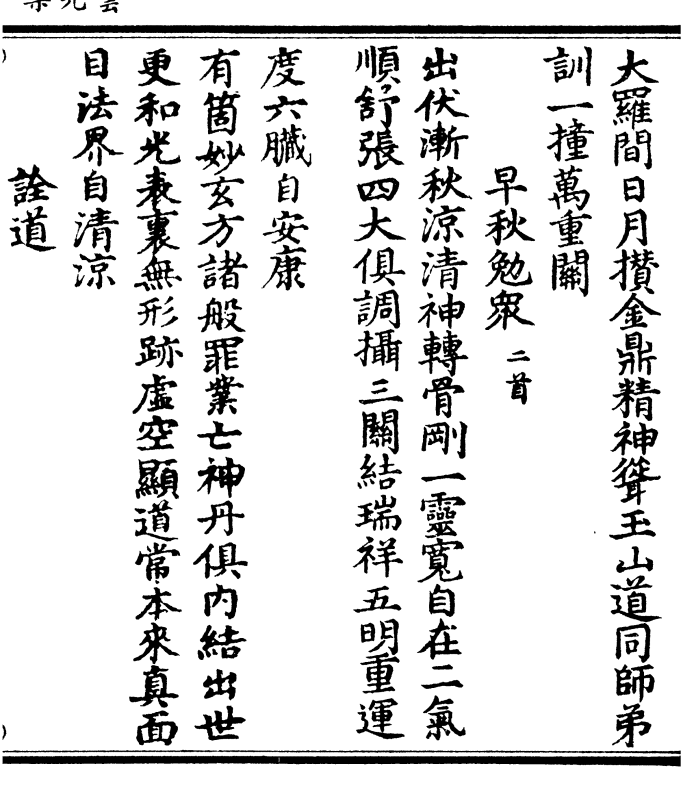 大羅間日月攅金鼎精神聳玉山道同師弟
訓一撞萬重關
早秋勉衆 二首
出伏漸秋涼清神轉骨剛一靈寬自在二氣
順舒張四大俱調攝三關結瑞祥五明重運
度六臟自安康
有箇妙玄方諸般罪業亡神丹俱内結出世
更和光表裏無形跡虛空顯道常本來真面
目法界自清涼
詮道